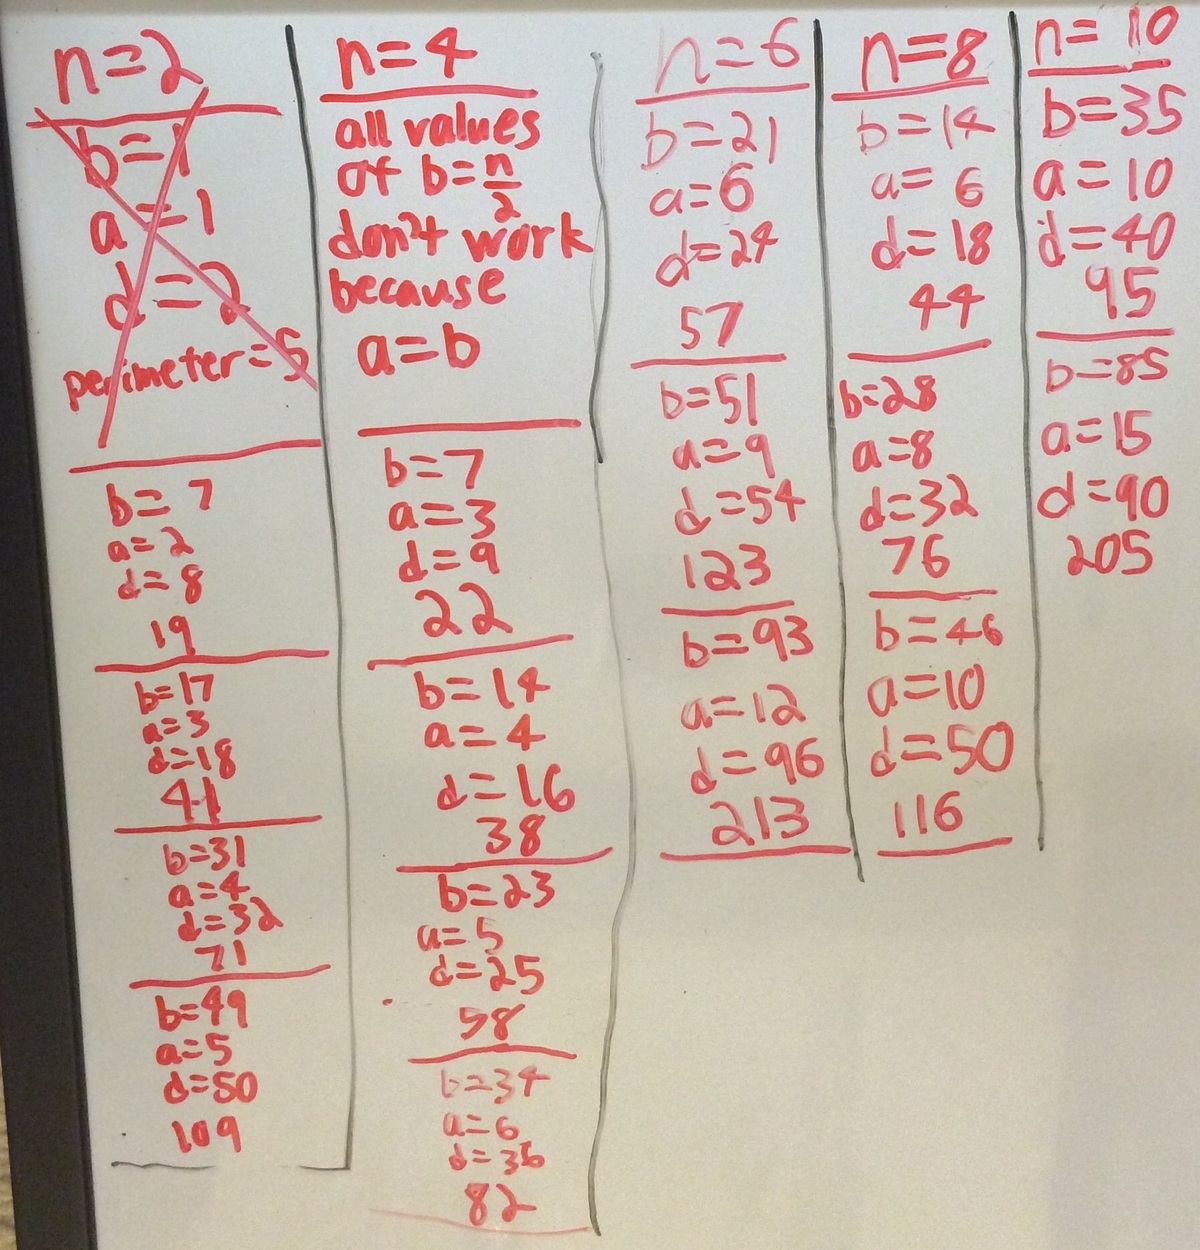 n=2
b=1
a=1
d=2
perimeter=5
b=7
a=2
d=8
19
b=17
a=3
d=18
41
b=31
a=4
d=32
71
b=49
a=5
d=50
109
n=4
all values
of b=n/2
don't work
because
a=b
b=7
a=3
d=9
22
b=14
a=4
d=16
38
b=23
a=5
d=25
58
b=34
a=6
d=36
82
n=6
b=21
a=6
d=24
57
b=51
a=9
d=54
123
b=93
a=12
d=96
213
n=8
b=14
a=6
d=18
44
b=28
a=8
d=32
76
b=46
a=10
d=50
116
n=10
b=35
a=10
d=40
95
b=85
a=15
d=90
205